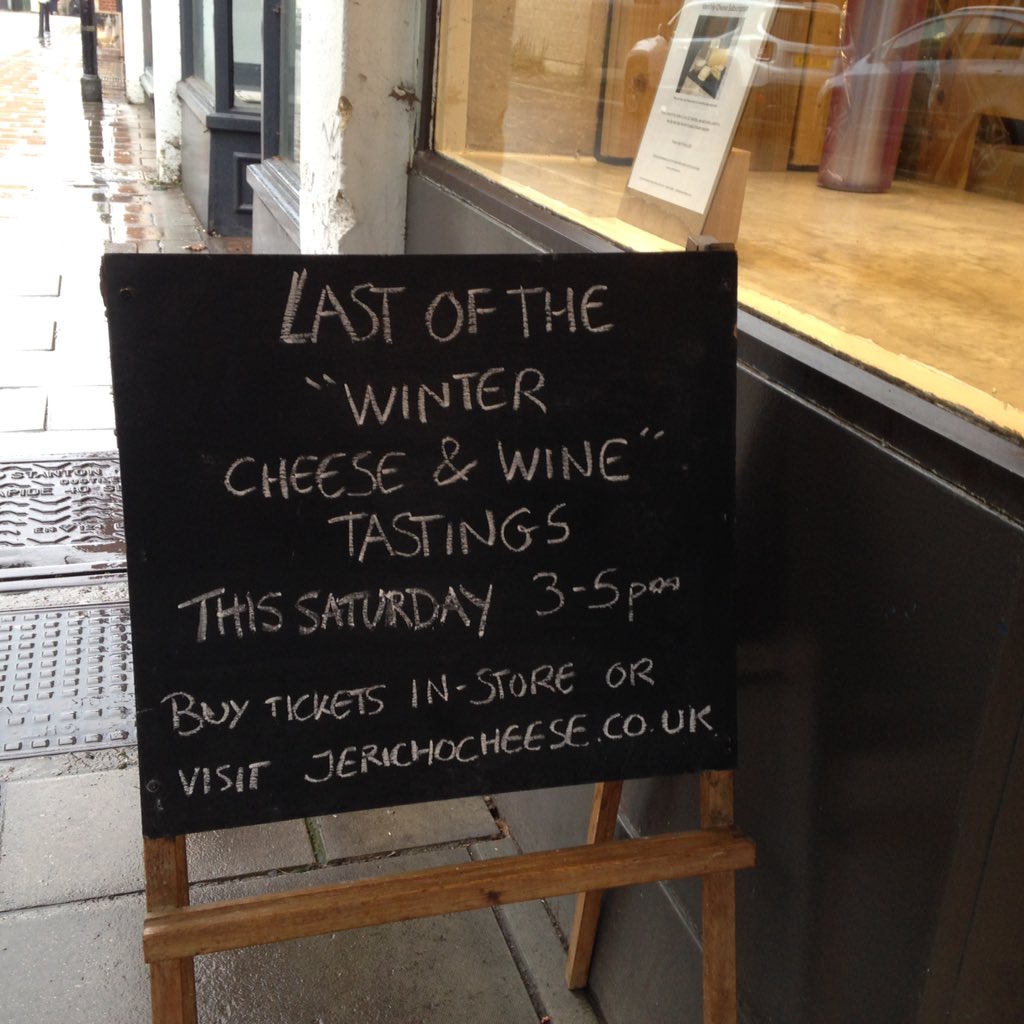 LAST OF THE
"WINTER
CHEESE & WINE"
TASTINGS
THIS SATURDAY 3-5pm
BUY TICKETS IN-STORE OR
VISIT JERICHOCHEESE.CO.UK
STANTON